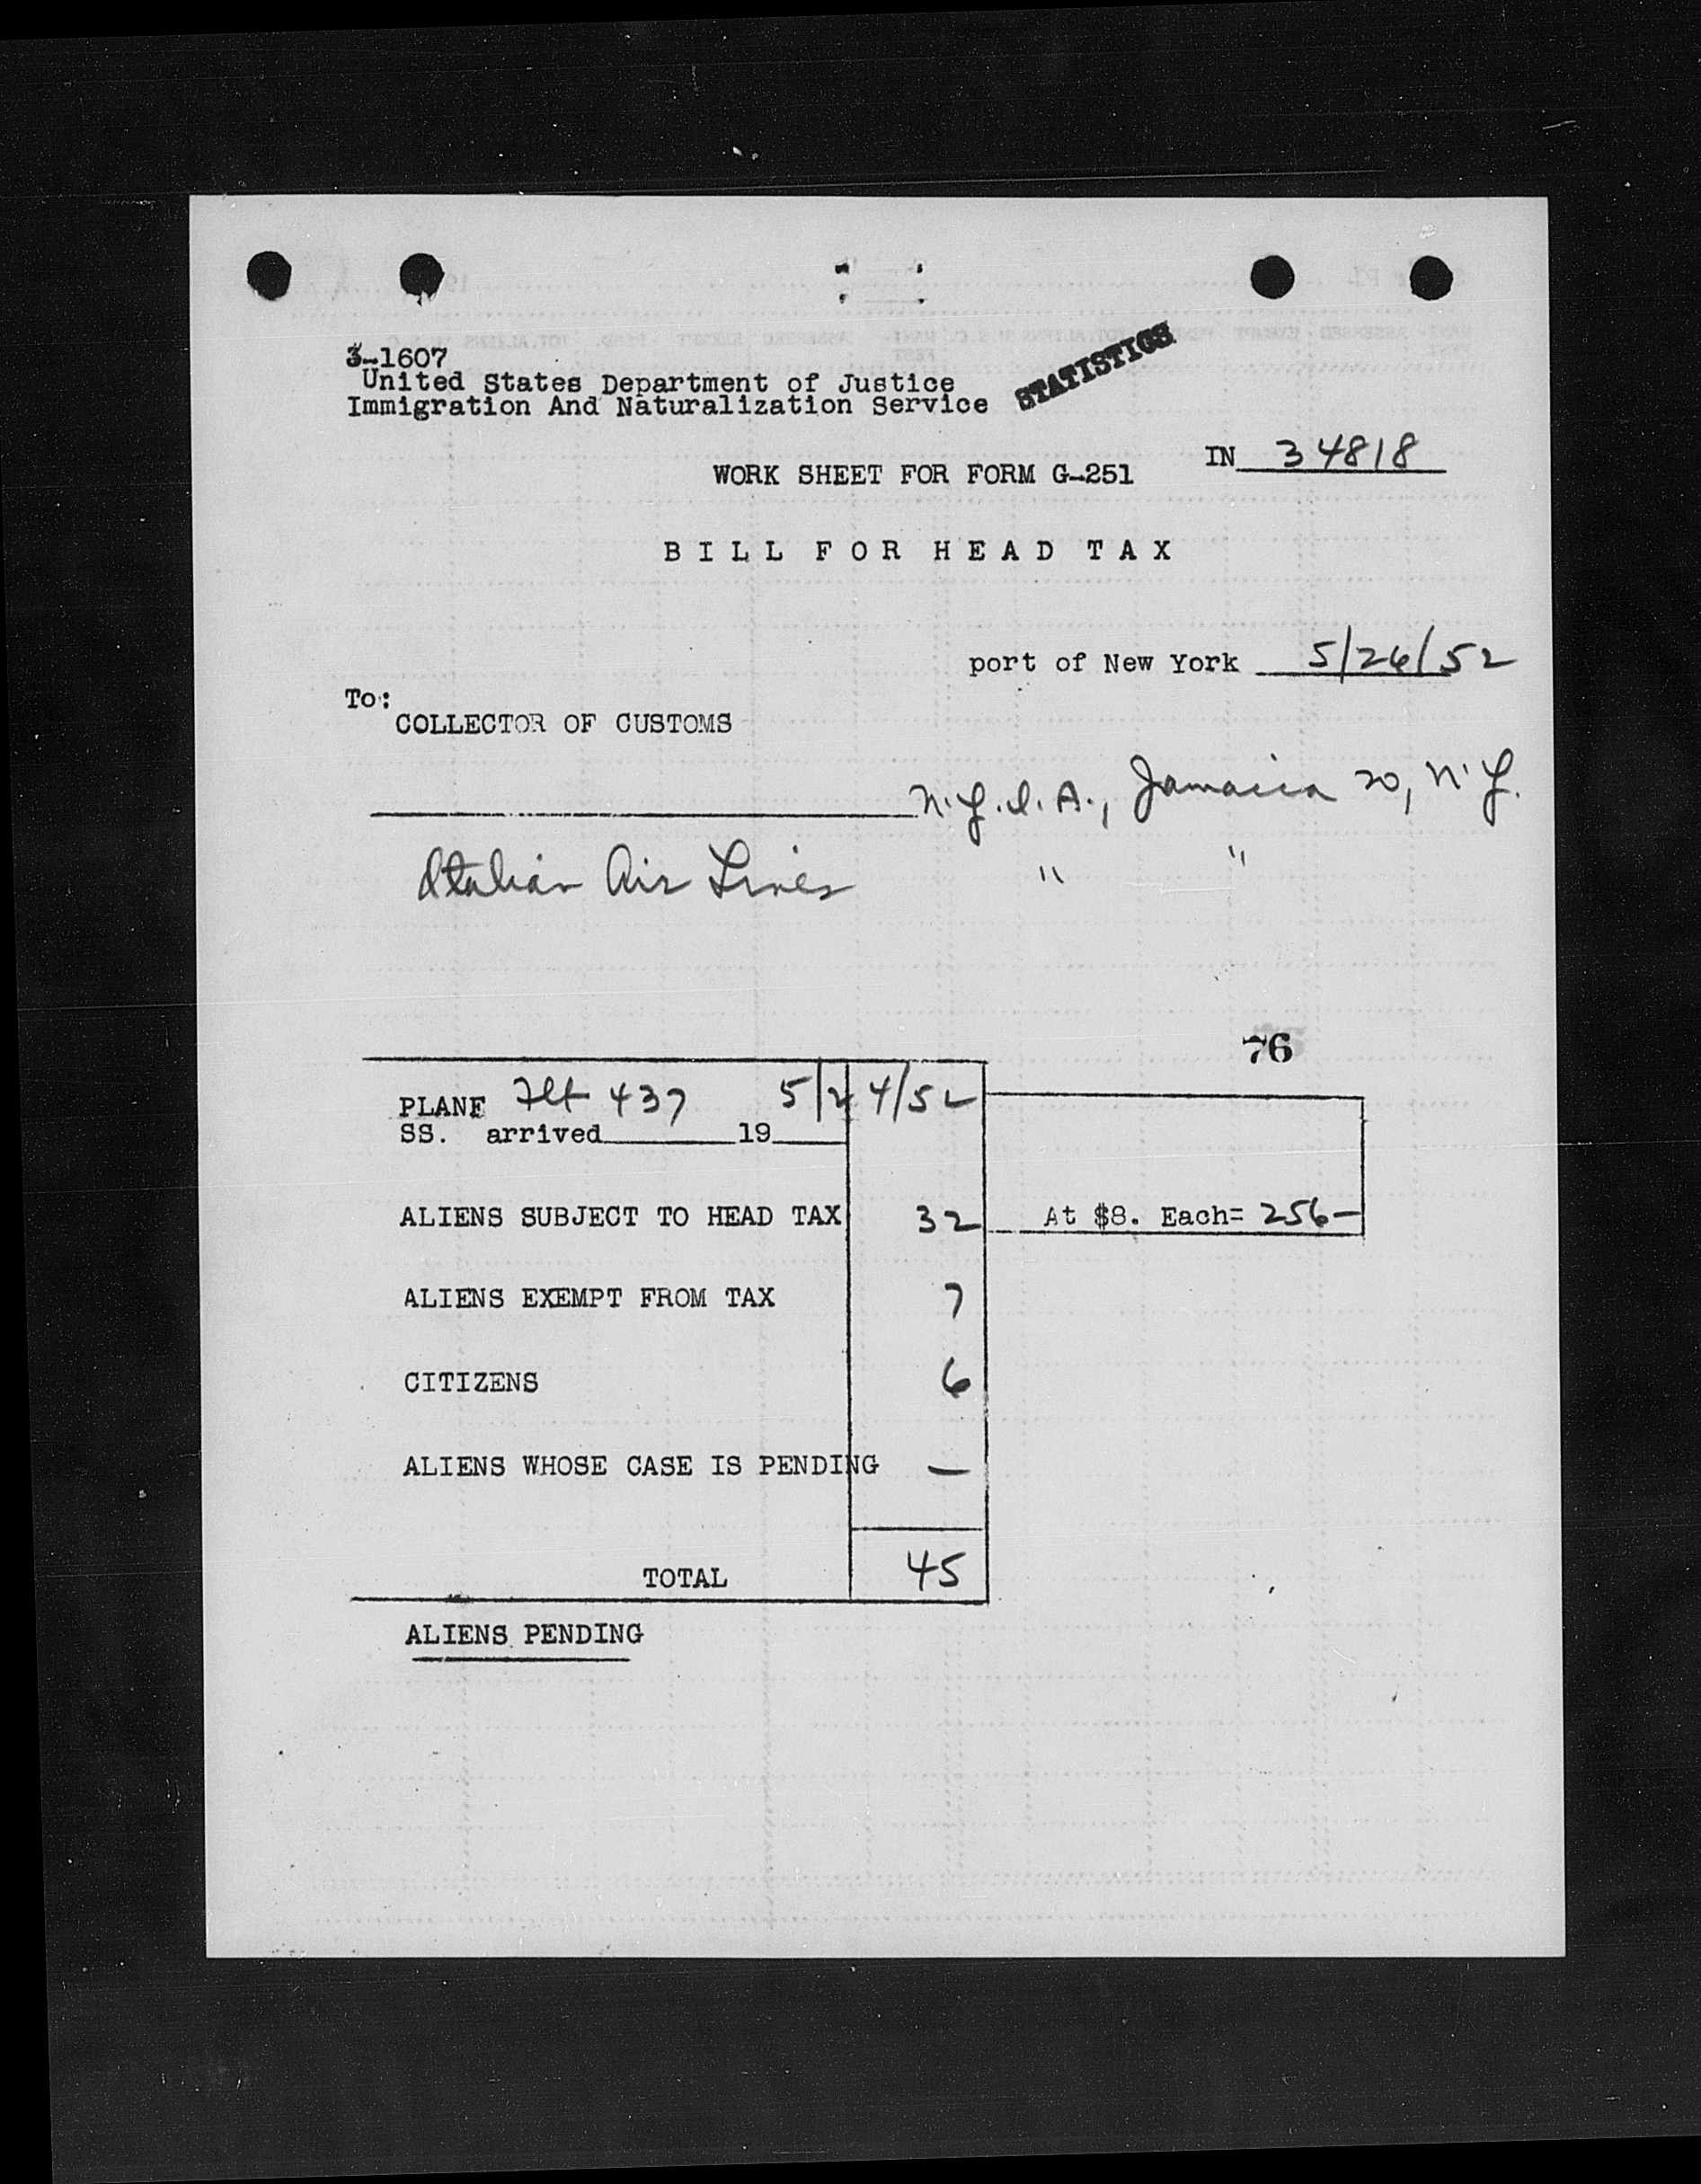 3-1607
United States Department of Justice
Immigration And Naturalization Service
STATISTICS
IN 34818
WORK SHEET FOR FORM G-251
BILL FOR HEAD TAX
port of New York 5/26/52
To:
COLLECTOR OF CUSTOMS
N.Y.I.A., Jamaica 20, N.Y.
Italian Air Lines " "
76
PLANE Flt 437 5/24/52
SS. arrived 19
ALIENS SUBJECT TO HEAD TAX 32 At $8. Each= 256-
ALIENS EXEMPT FROM TAX 7
CITIZENS 6
ALIENS WHOSE CASE IS PENDING —
TOTAL 45
ALIENS PENDING